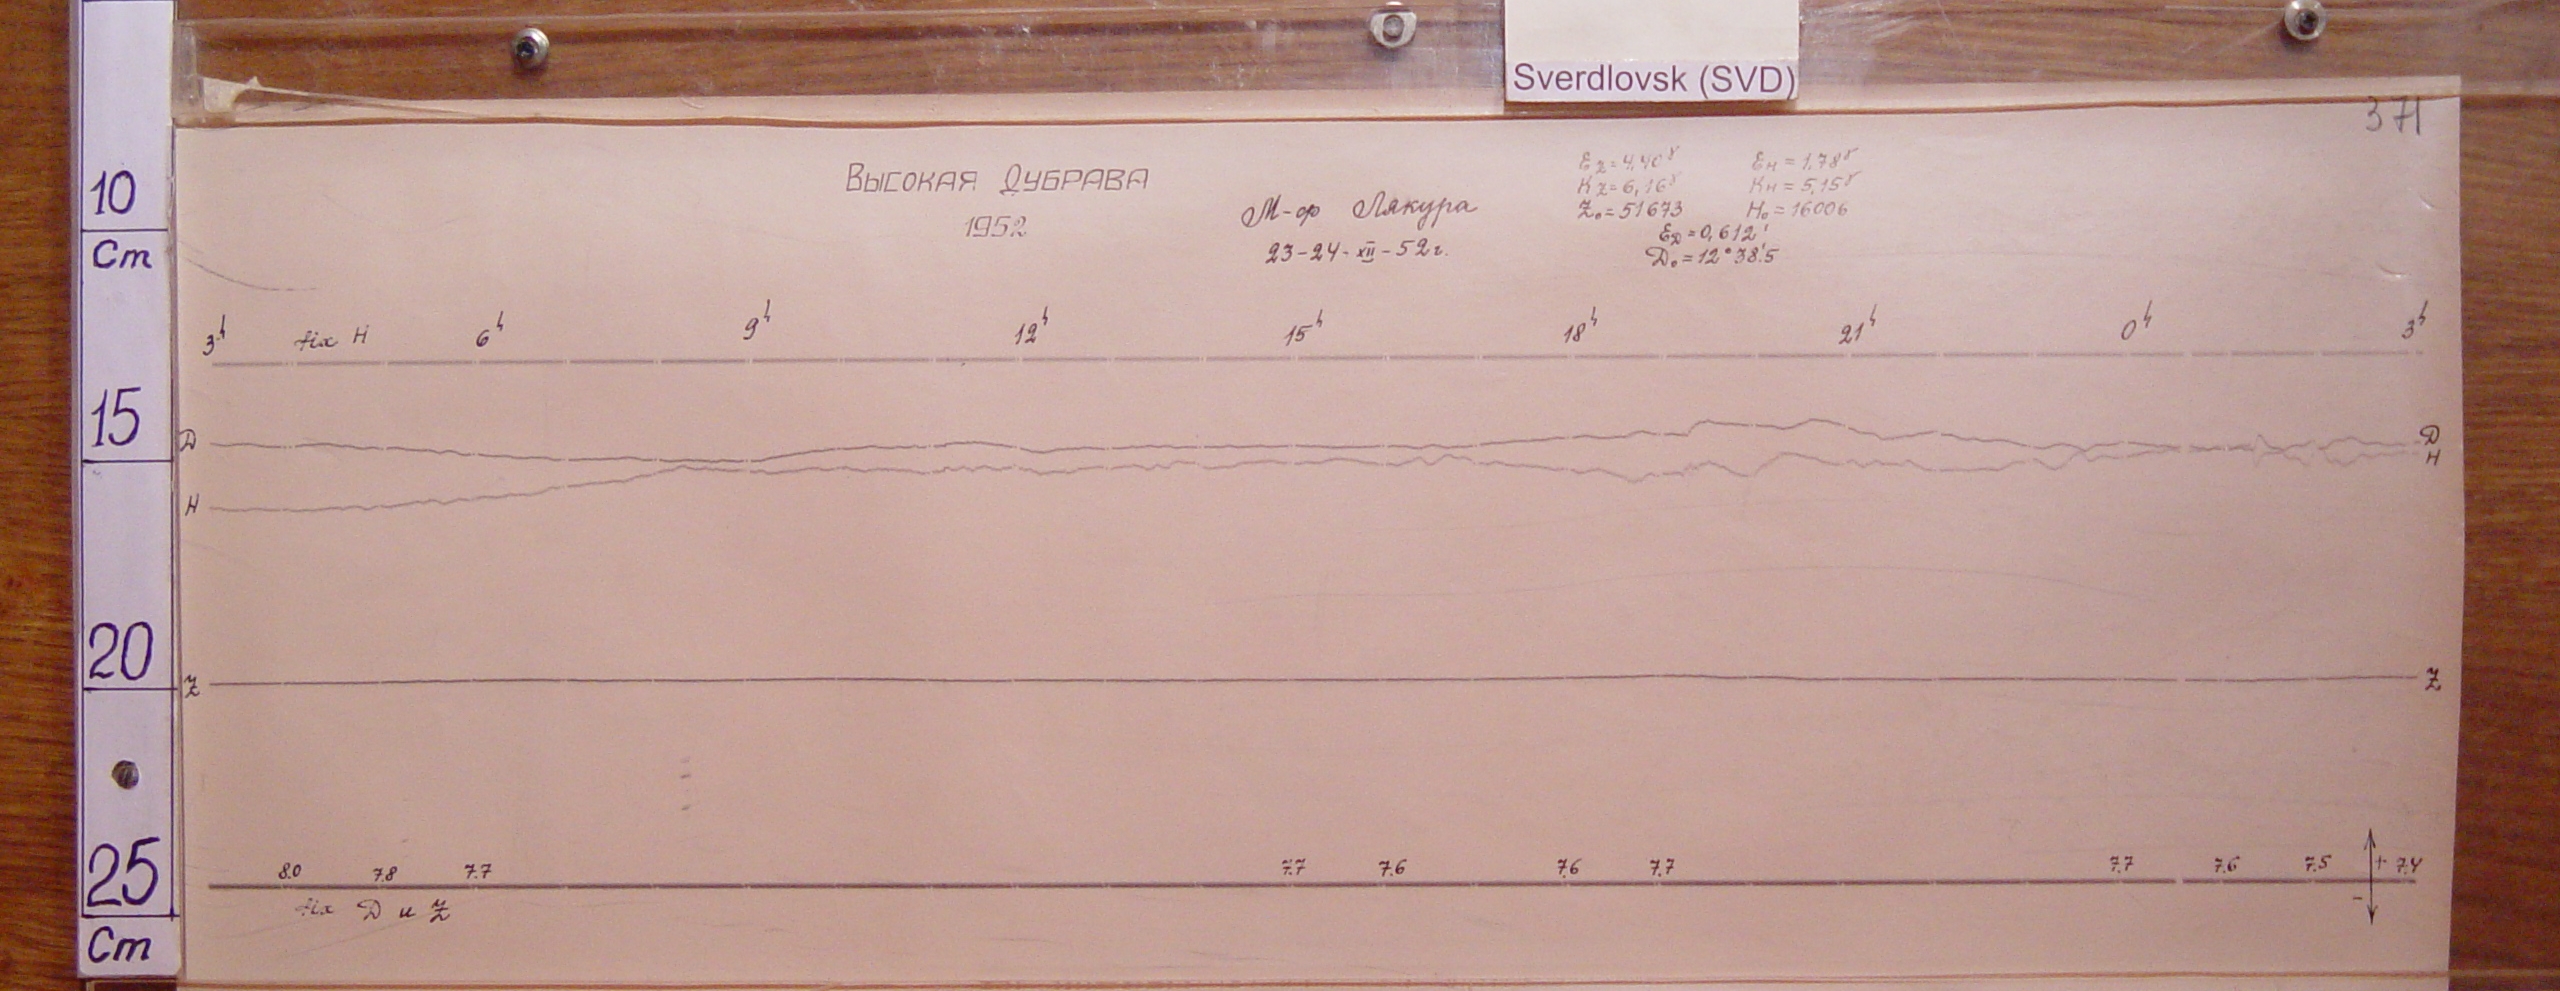 Sverdlovsk (SVD)
371
Высокая Дубрава
1952
М-ф Лякура
23-24-XII-52г.
Ez=4,40γ Eн=1,78γ
Kz=6,16γ Kн=5,15γ
Z₀=51673 H₀=16006
E_D=0,612'
D₀=12°38'.5
3h fix H 6h 9h 12h 15h 18h 21h 0h 3h
D D
H H
Z Z
8.0 7.8 7.7 7.7 7.6 7.6 7.7 7.7 7.6 7.5 + 7.4
-
fix D и Z
10
Cm
15
20
25
Cm